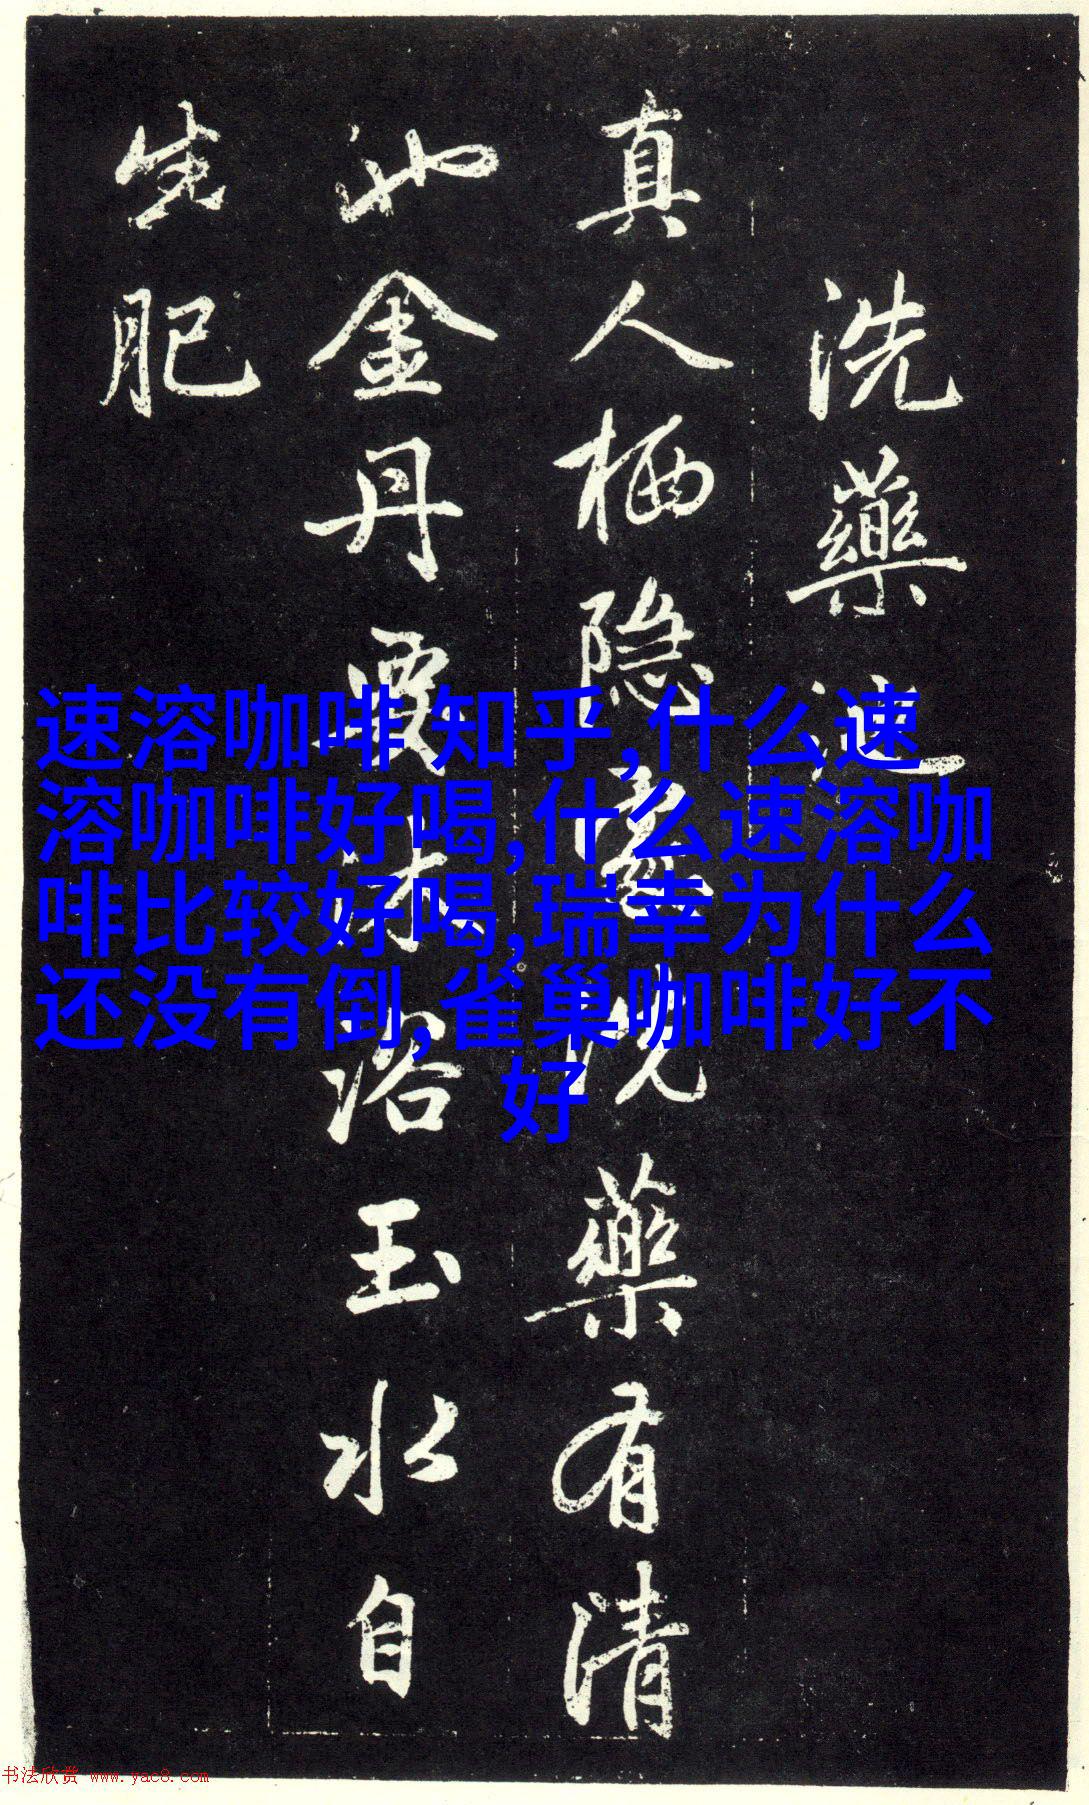 洗藥池
真人栖隐處洗藥有清
池金丹要沐浴玉水自
生肥
速溶咖啡 知乎,什么速
溶咖啡好喝,什么速溶咖
啡比较好喝,瑞幸为什么
还没有倒,雀巢咖啡好不
好
书法欣赏 www.yac8.com